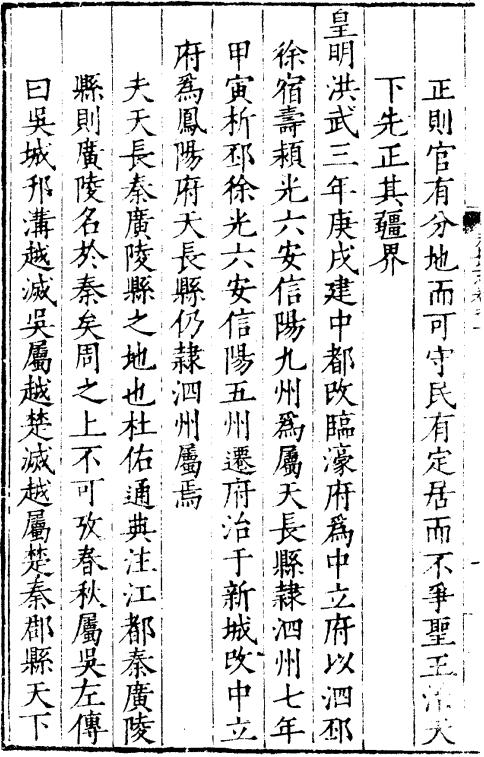 正則官有分地而可守民有定居而不爭聖王治天
下先正其疆界
皇明洪武三年庚戌建中都改臨濠府爲中立府以泗邳
徐宿壽頴光六安信陽九州爲屬天長縣隸泗州七年
甲寅析邳徐光六安信陽五州遷府治于新城改中立
府爲鳳陽府天長縣仍隸泗州屬焉
夫天長秦廣陵縣之地也杜佑通典注江都秦廣陵
縣則廣陵名於秦矣周之上不可攷春秋屬吳左傳
曰吳城邗溝越滅吳屬越楚滅越屬楚秦郡縣天下